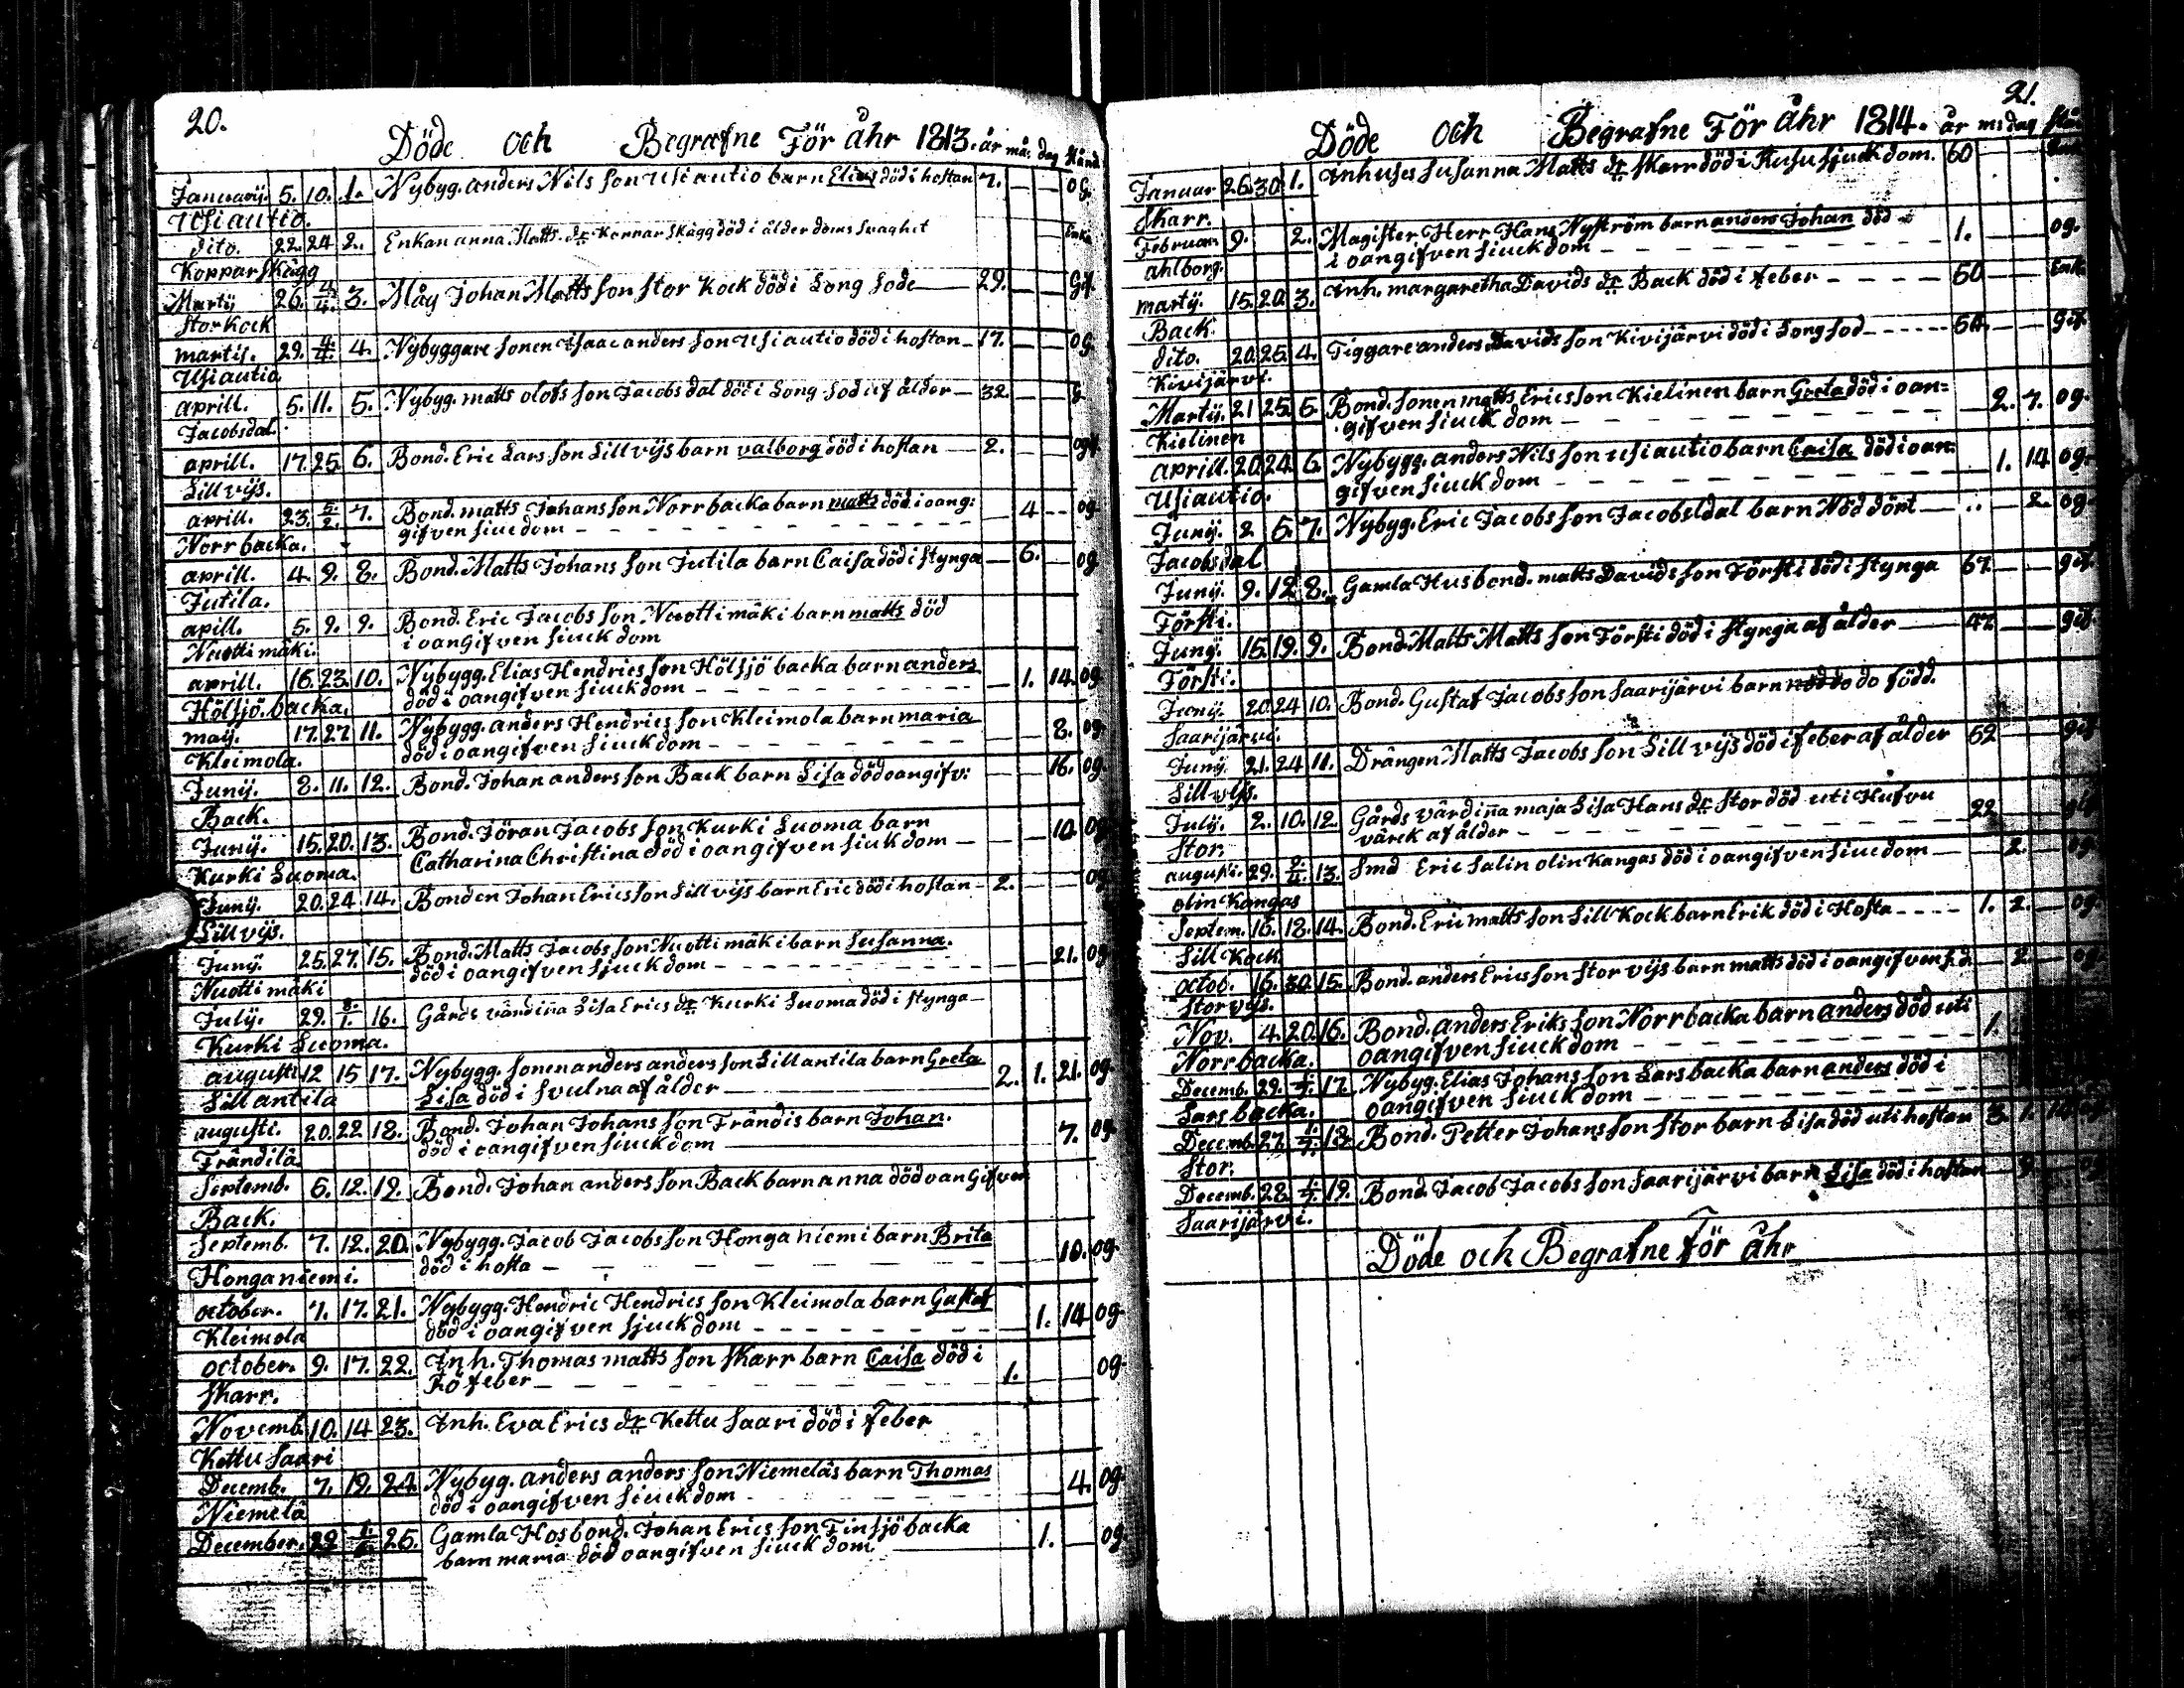 20.
Döde och Begrafne För åhr 1813. år må. dag Stånd
Januarij. 5. 10. 1. Nybyg. anders Nils son Usiautio barn Elias död i hostan 7. — — og.
Usiautio.
dito. 22. 24 2. Enkan anna Matts dr Kopparskägg död i ålderdoms svaghet Enka
Kopparskägg
Martij 26. 4/4. 3. Måg Johan Matts son stor Kock död i Long sode — 29. — — Gif.
stor Kock
martij. 29. 4/4. 4. Nybyggare sonen Isaac anders son Usiautio död i hostan — 17. — — og.
Usiautio
aprill. 5. 11. 5. Nybyg. matts olofs son Jacobsdal död i Long-sod uf ålder — 32. — — g.
Jacobsdal.
aprill. 17. 25. 6. Bond. Eric Lars son Lillvijs barn valborg död i hostan — 2. — — ogf
Lillvijs.
aprill. 23. 5/2. 7. Bond. matts Johans son Norrbacka barn matts död i oang:
Norrbacka. gifven siucdom — 4 — — og.
aprill. 4. 9. 8. Bond. Matts Johans son Jutila barn Caisa död i stynga — 6. — og.
Jutila.
apill. 5. 9. 9. Bond. Eric Jacobs son Nuottimäki barn matts död
Nuottimäki. i oangifven siuckdom
aprill. 16. 23. 10. Nybygg. Elias Hendrics son Hölsjö backa barn anders
Hölsjö backa. död i oangifven siuckdom — 1. 14. og.
maij. 17. 27. 11. Nybygg. anders Hendrics son Kleimola barn maria
Kleimola. död i oangifven siuckdom — 8. og.
Junij. 8. 11. 12. Bond. Johan anders son Back barn Lisa död oangifv: — — 16. og.
Back.
Junij. 15. 20. 13. Bond. Jöran Jacobs son Kurki Luoma barn
Kurki Luoma. Catharina Christina död i oangifven siukdom — — 10. og
Junij. 20. 24 14. Bonden Johan Erics son Lillvijs barn Eric död i hostan — 2. — — og
Lillvijs.
Junij. 25. 27. 15. Bond. Matts Jacobs son Nuottimäki barn Susanna.
Nuottimäki död i oangifven sjuckdom — 21. og
Julij. 29. 8/1. 16. Gårds värdinna Lisa Erics dr Kurki Luoma död i stynga —
Kurki Luoma.
augusti 12 15 17. Nybygg. sonen anders anders son Lillantila barn Greta
Lillantila Lisa död i svulna af ålder — 2. 1. 21. og
augusti. 20. 22 18. Bond. Johan Johans son Frändis barn Johan.
Frändilä. död i oangifven siuckdom — 7. og.
Septemb. 6. 12. 19. Bond. Johan anders son Back barn anna död oangifven
Back.
Septemb. 7. 12. 20. Nybygg. Jacob Jacobs son Honganiemi barn Brita
Honganiemi. död i hosta — 10. og.
october. 7. 17. 21. Nybygg. Hendric Hendrics son Kleimola barn Gustaf
Kleimola död i oangifven sjuckdom — 1. 14 og-
October. 9. 17. 22. Inh. Thomas matts son skarr barn Caisa död i
skarr. Röfeber — 1. og-
Novemb. 10. 14 23. Inh. Eva Erics dr Kettusaari död i feber
Kettusaari
Decemb. 7. 19. 24. Nybyg. anders anders son Niemeläs barn Thomas
Niemelä död i oangifven siuckdom — 4. og-
December. 29 25. Gamla Hosbond. Johan Erics son Finsjöbacka
barn maria död oangifven siuckdom — 1. — og-
21.
Döde och Begrafne För åhr 1814. år m: dag
Januar 26. 30. 1. Inhuses Susanna Matts dr skarr död i Rusu sjuckdom. 60
skarr.
Februar. 9. 2. Magister Herr Hans Nyström barn anders Johan död
ahlborg. i oangifven siuckdom — 1. — — og.
martij. 15. 20. 3. Inh. margaretha Davids dr Back död i feber — 50 — — Enk.
Back.
dito. 20. 25. 4. Tiggare anders Davids son Kivijärvi död i Long sod — — gif.
Kivijärvi.
Martij. 21 25. 5. Bond. sonen matts Erics son Kielinen barn Greta död i oan=
Kielinen gifven siuckdom — 2. 7. og.
aprill. 20. 24. 6. Nybygg. anders Nils son Usiautio barn Caisa död i oan:
Usiautio. gifven siuckdom — 1. 14 og-
Junij. 2. 5. 7. Nybyg. Eric Jacobs son Jacobsdal barn Nöd döpt — 2. og-
Jacobsdal
Junij. 9. 12. 8. Gamla Husbond. matts Davids son Försti död i stynga 67. — — gif.
Försti.
Junij. 15. 19. 9. Bond. Matts Matts son Försti död i stynga af ålder — 47 — gif.
Försti.
Junij. 20. 24 10. Bond. Gustaf Jacobs son Saarijärvi barn do född.
Saarijärvi.
Junij. 21. 24 11. Drängen Matts Jacobs son Lillvijs död i feber af ålder 62 — gif
Lillvijs.
Julij. 2. 10. 12. Gårds värdinna maja Lisa Hans dr stor död uti Hufvu
Stor. värck af ålder — 22
augusti. 29. 13. Smd Eric Salin olinkangas död i oangifven siucdom — 2. — og.
olinkangas
Septem. 16. 18. 14. Bond. Eric matts son Lill Kock barn Erik död i Hosta — 1. 2. — og.
Lill Kock
octob. 16. 30. 15. Bond. anders Erics son stor vijs barn matts död i oangifven s.d. — 2. — og.
stor vijs.
Nov. 4. 20. 16. Bond. anders Eriks son Norrbacka barn anders död uti
Norrbacka. oangifven siuckdom — 1.
Decemb. 29. 17. Nybyg. Elias Johans son Larsbacka barn anders död i
Larsbacka. oangifven siuckdom —
Decemb. 27. 18. Bond. Petter Johans son stor barn Lisa död uti hostan 3. 1.
Stor.
Decemb. 28. 19. Bond. Jacob Jacobs son Saarijärvi barn Lisa död i hostan
Saarijärvi.
Döde och Begrafne För åhr